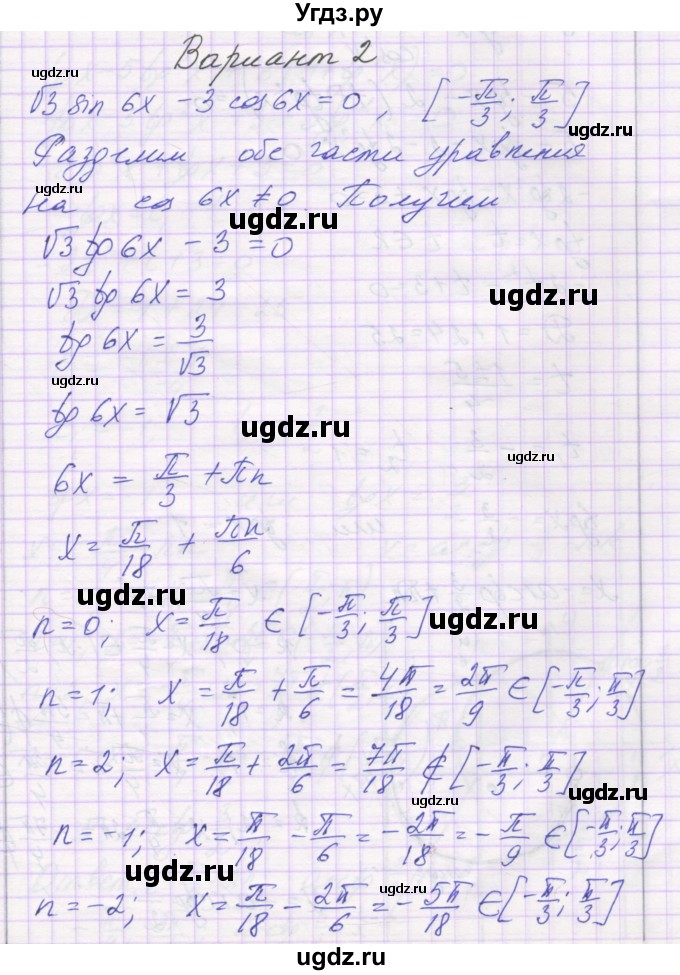 Угдз.ру
Вариант 2
ugdz.ru
√3 sin 6x − 3 cos 6x = 0, [−π/3; π/3]
ugdz.ru
Разделим обе части уравнения
на cos 6x ≠ 0. Получим
ugdz.ru
√3 tg 6x − 3 = 0
√3 tg 6x = 3
ugdz.ru
tg 6x = 3/√3
ugdz.ru
tg 6x = √3
ugdz.ru
6x = π/3 + πn
ugdz.ru
x = π/18 + πn/6
ugdz.ru
n = 0; x = π/18 ∈ [−π/3; π/3]
ugdz.ru
n = 1; x = π/18 + π/6 = 4π/18 = 2π/9 ∈ [−π/3; π/3]
n = 2; x = π/18 + 2π/6 = 7π/18 ∉ [−π/3; π/3]
ugdz.ru
ugdz.ru
n = −1; x = π/18 − π/6 = −2π/18 = −π/9 ∈ [−π/3; π/3]
n = −2; x = π/18 − 2π/6 = −5π/18 ∈ [−π/3; π/3]
ugdz.ru
ugdz.ru
ugdz.ru